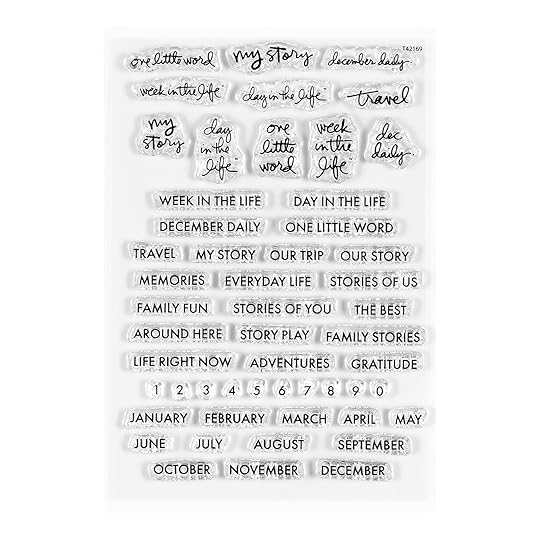 T42169
one little word my story december daily
week in the life™ day in the life™ travel
my story day in the life™ one little word week in the life™ dec daily
WEEK IN THE LIFE DAY IN THE LIFE
DECEMBER DAILY ONE LITTLE WORD
TRAVEL MY STORY OUR TRIP OUR STORY
MEMORIES EVERYDAY LIFE STORIES OF US
FAMILY FUN STORIES OF YOU THE BEST
AROUND HERE STORY PLAY FAMILY STORIES
LIFE RIGHT NOW ADVENTURES GRATITUDE
1 2 3 4 5 6 7 8 9 0
JANUARY FEBRUARY MARCH APRIL MAY
JUNE JULY AUGUST SEPTEMBER
OCTOBER NOVEMBER DECEMBER